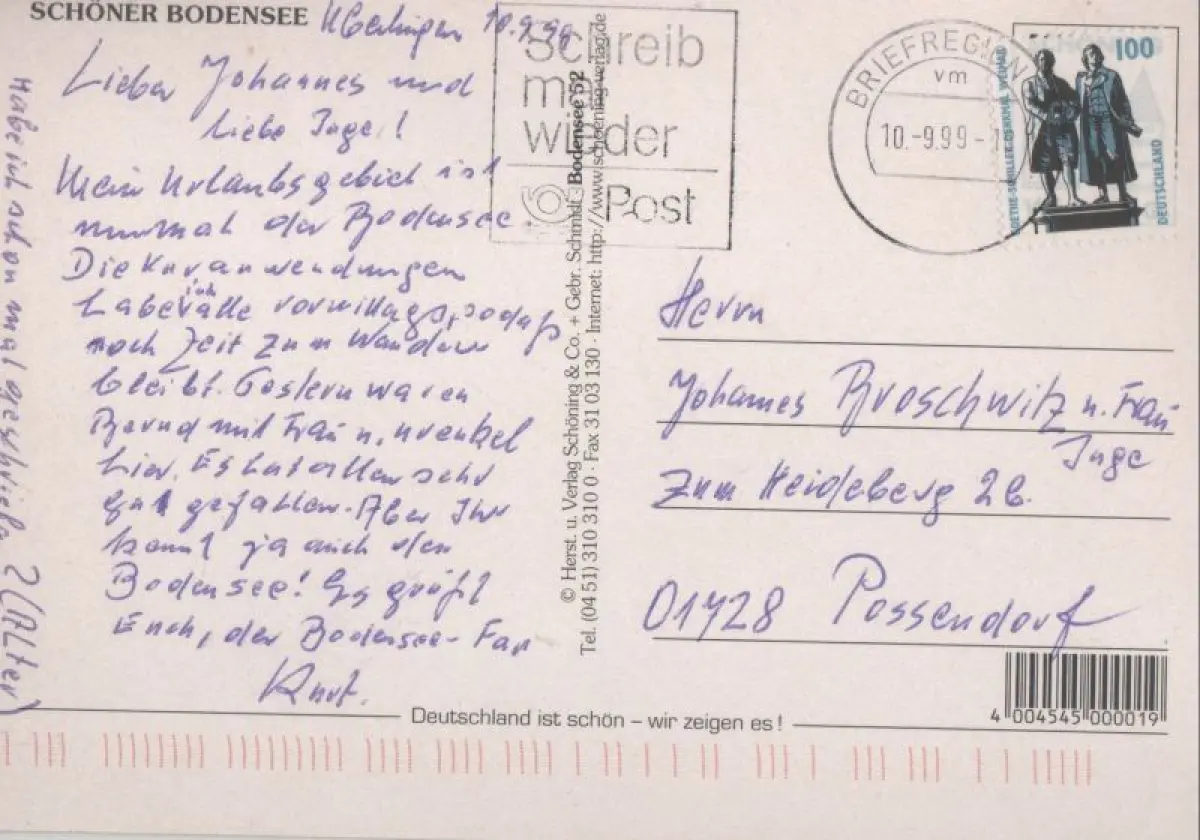 SCHÖNER BODENSEE
Überlingen 10.9.99
Lieber Johannes und
liebe Inge!
Mein Urlaubsgebiet ist
nunmal der Bodensee.
Die Kuranwendungen
habe ich alle vormittags, sodaß
noch Zeit zum Wandern
bleibt. Gestern waren
Bernd mit Frau u. Urenkel
hier. Es hat allen sehr
gut gefallen. Aber Ihr
kennt ja auch den
Bodensee! Es grüßt
Euch, der Bodensee-Fan
Kurt.
Habe ich schon mal geschrieben? (Alter)
Schreib
mal
wieder
Post
BRIEFREGION
vm
10.-9.99-
100
GOETHE-SCHILLER-DENKMAL WEIMAR
DEUTSCHLAND
© Herst. u. Verlag Schöning & Co. + Gebr. Schmidt Bodensee 52
Tel. (04 51) 310 310 0 · Fax 31 03 130 · Internet: http://www.schoening-verlag.de
Herrn
Johannes Broschwitz u. Frau
Inge
Zum Heideberg 2b.
01728 Possendorf
4 004545 000019
Deutschland ist schön – wir zeigen es!